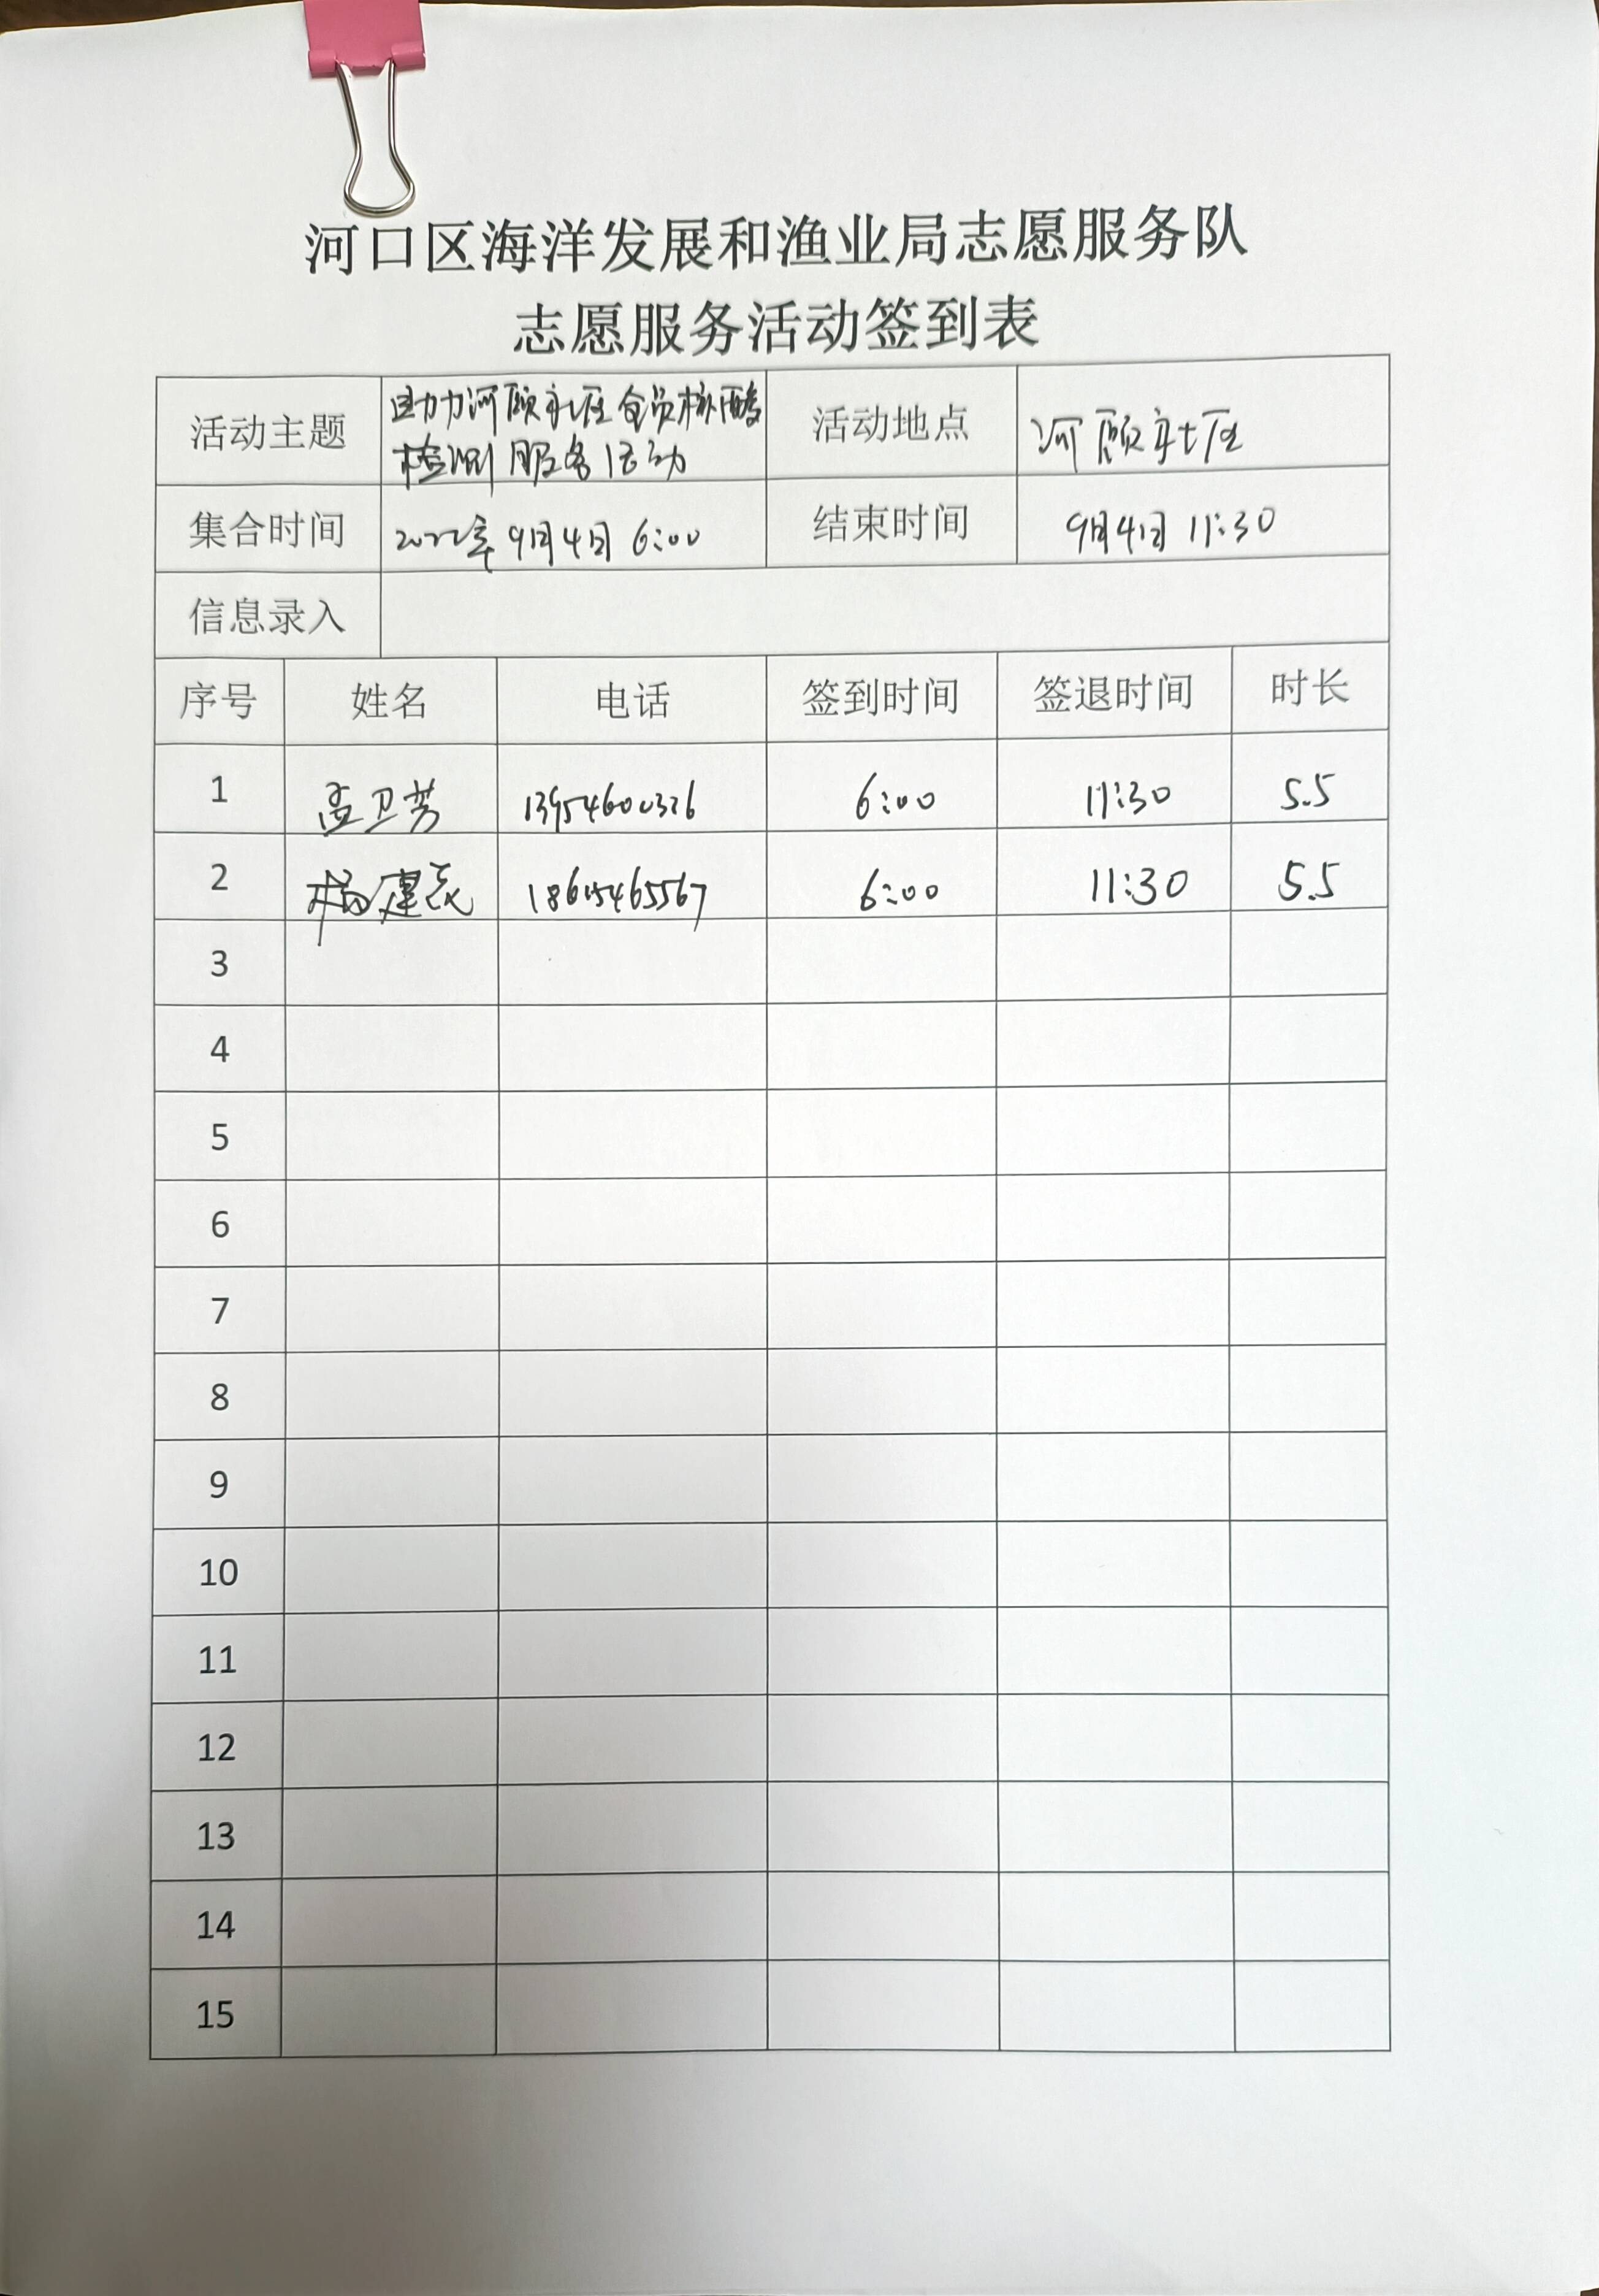 河口区海洋发展和渔业局志愿服务队
志愿服务活动签到表
活动主题 助力河颐社区全员核酸检测服务活动 活动地点 河颐社区
集合时间 2022年9月4日 6:00 结束时间 9月4日 11:30
信息录入
序号 姓名 电话 签到时间 签退时间 时长
1 孟卫芳 13954600326 6:00 11:30 5.5
2 杨建 18615465567 6:00 11:30 5.5
3
4
5
6
7
8
9
10
11
12
13
14
15